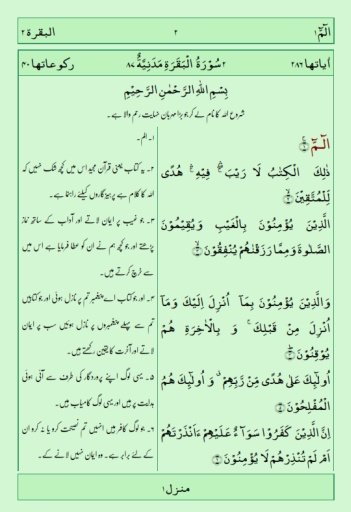 الٓمّٓ ۱
۲
البقرة ۲
اٰیاتها ۲۸۶
۲ سُوْرَةُ الْبَقَرَةِ مَدَنِیَّةٌ ۸۷
ركوعاتها ۴۰
بِسْمِ اللّٰهِ الرَّحْمٰنِ الرَّحِیْمِ
شروع اللہ کا نام لے کر جو بڑا مہربان نہایت رحم والا ہے۔
الٓمّٓ ۚ﴿۱﴾
ذٰلِكَ الْكِتٰبُ لَا رَیْبَ ۛۚ فِیْهِ ۛۚ هُدًی
لِّلْمُتَّقِیْنَ ۙ﴿۲﴾
الَّذِیْنَ یُؤْمِنُوْنَ بِالْغَیْبِ وَیُقِیْمُوْنَ
الصَّلٰوةَ وَمِمَّا رَزَقْنٰهُمْ یُنْفِقُوْنَ ۙ﴿۳﴾
وَالَّذِیْنَ یُؤْمِنُوْنَ بِمَاۤ اُنْزِلَ اِلَیْكَ وَمَاۤ
اُنْزِلَ مِنْ قَبْلِكَ ۚ وَ بِالْاٰخِرَةِ هُمْ
یُوْقِنُوْنَ ؕ﴿۴﴾
اُولٰٓئِكَ عَلٰی هُدًی مِّنْ رَّبِّهِمْ ۗ وَ اُولٰٓئِكَ هُمُ
الْمُفْلِحُوْنَ ﴿۵﴾
اِنَّ الَّذِیْنَ كَفَرُوْا سَوَآءٌ عَلَیْهِمْ ءَاَنْذَرْتَهُمْ
اَمْ لَمْ تُنْذِرْهُمْ لَا یُؤْمِنُوْنَ ﴿۶﴾
۱۔ الم۔
۲۔ یہ کتاب یعنی قرآن مجید اس میں کچھ شک نہیں کہ
اللہ کا کلام ہے پرہیزگاروں کیلئے راہنما ہے۔
۳۔ جو غیب پر ایمان لاتے اور آداب کے ساتھ نماز
پڑھتے اور جو کچھ ہم نے ان کو عطا فرمایا ہے اس میں
سے خرچ کرتے ہیں۔
۴۔ اور جو کتاب اے پیغمبر تم پر نازل ہوئی اور جو کتابیں
تم سے پہلے پیغمبروں پر نازل ہوئیں سب پر ایمان
لاتے اور آخرت کا یقین رکھتے ہیں۔
۵۔ یہی لوگ اپنے پروردگار کی طرف سے آئی ہوئی
ہدایت پر ہیں اور یہی لوگ کامیاب ہیں۔
۶۔ جو لوگ کافر ہیں انہیں تم نصیحت کرو یا نہ کرو ان
کے لئے برابر ہے۔ وہ ایمان نہیں لانے کے۔
منزل ۱